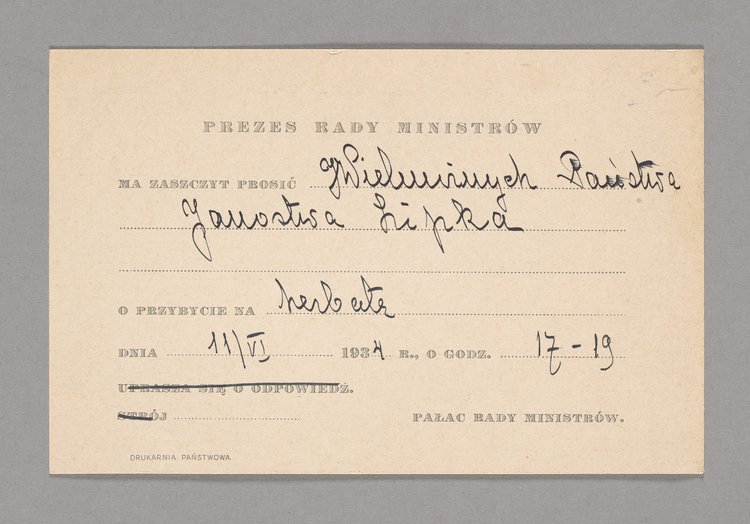 PREZES RADY MINISTRÓW
MA ZASZCZYT PROSIĆ JWielmożnych Państwa
Janostwa Lipka
O PRZYBYCIE NA herbatę
DNIA 11/VI 1934 R., O GODZ. 17-19
UPRASZA SIĘ O ODPOWIEDŹ.
STRÓJ
PAŁAC RADY MINISTRÓW.
DRUKARNIA PAŃSTWOWA.